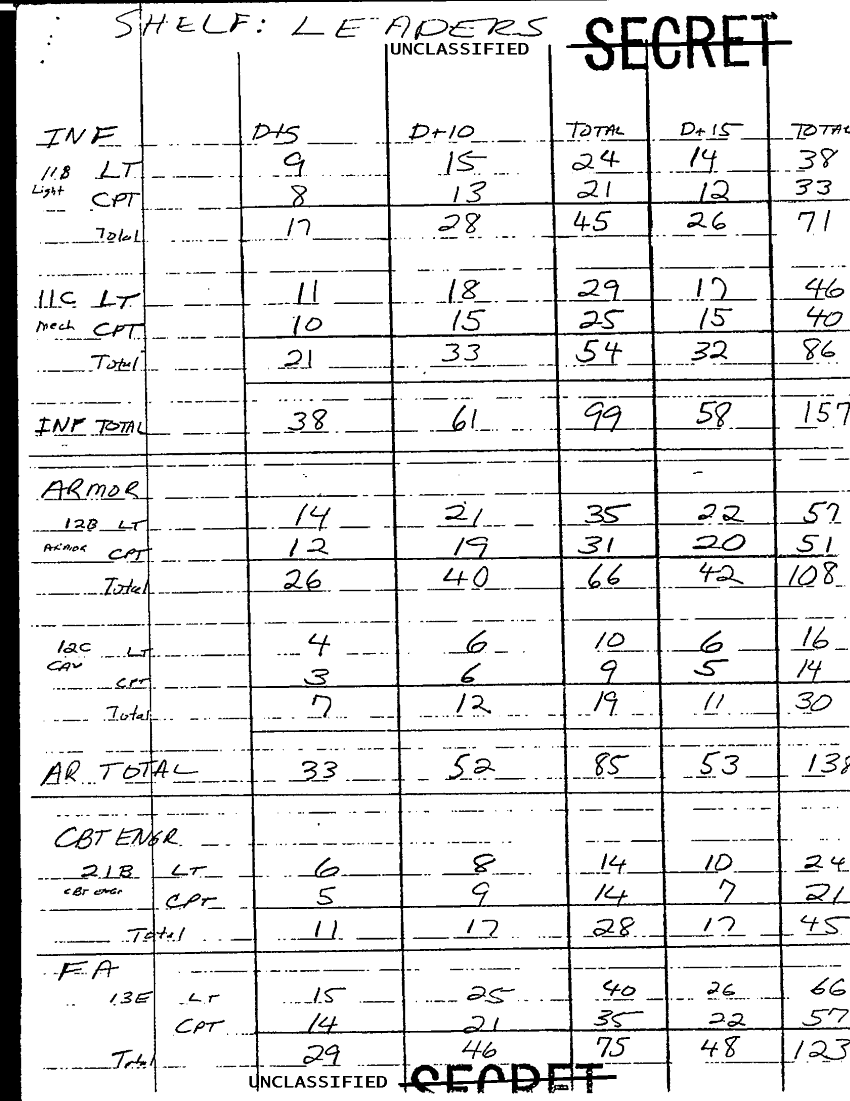 SHELF: LEADERS
UNCLASSIFIED SECRET
INF D+5 D+10 TOTAL D+15 TOTAL
11B LT 9 15 24 14 38
Light CPT 8 13 21 12 33
Total 17 28 45 26 71
11C LT 11 18 29 17 46
Mech CPT 10 15 25 15 40
Total 21 33 54 32 86
INF TOTAL 38 61 99 58 157
ARMOR
12B LT 14 21 35 22 57
ARMOR CPT 12 19 31 20 51
Total 26 40 66 42 108
12C LT 4 6 10 6 16
CAV
CPT 3 6 9 5 14
Total 7 12 19 11 30
AR TOTAL 33 52 85 53 138
CBT ENGR
21B LT 6 8 14 10 24
CBT ENGR CPT 5 9 14 7 21
Total 11 17 28 17 45
FA
13E LT 15 25 40 26 66
CPT 14 21 35 22 57
Total 29 46 75 48 123
UNCLASSIFIED SECRET